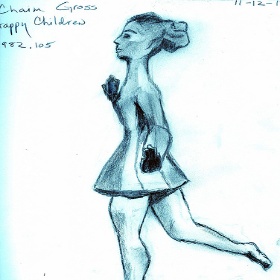 Chaim Gross
Happy Children
1982.105
11-12-1